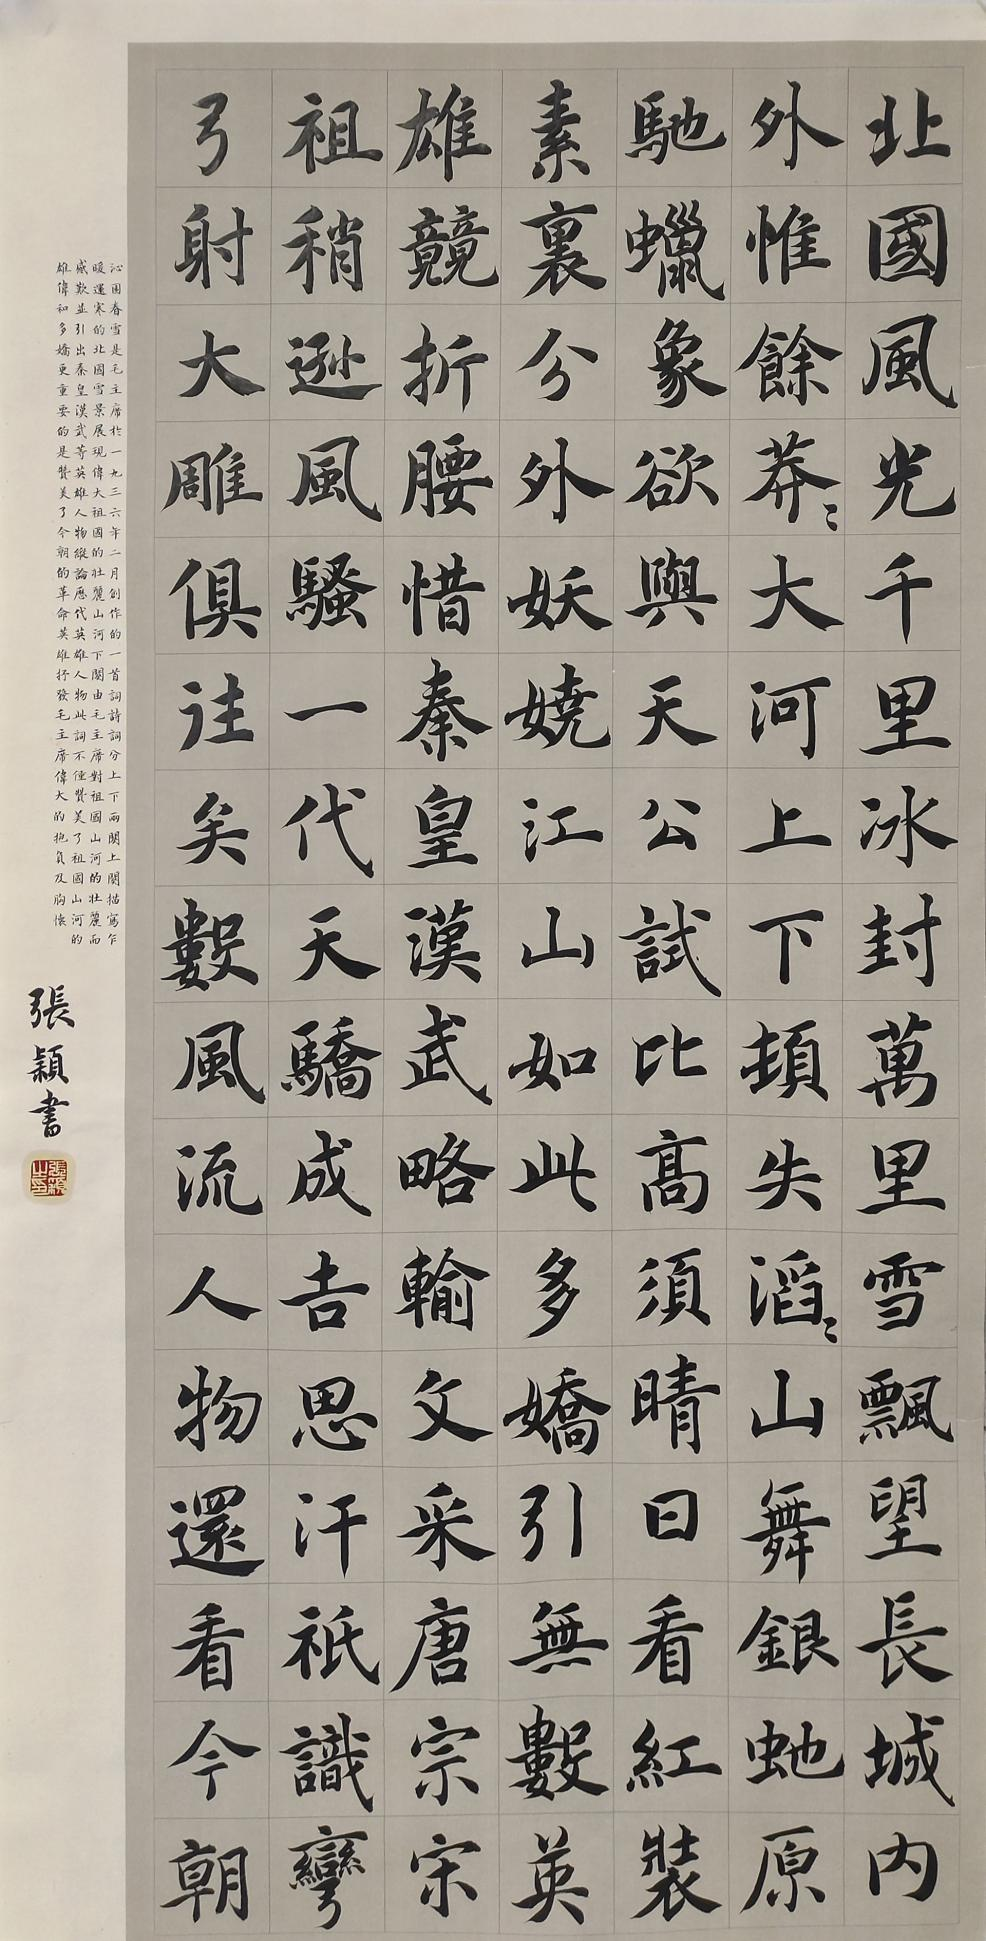 北國風光千里冰封萬里雪飄望長城内
外惟餘莽〻大河上下頓失滔〻山舞銀虵原
馳蠟象欲與天公試比高須晴日看紅裝
素裹分外妖嬈江山如此多嬌引無數英
雄競折腰惜秦皇漢武略輸文采唐宗宋
祖稍遜風騷一代天驕成吉思汗衹識彎
弓射大雕俱往矣數風流人物還看今朝
沁園春雪是毛主席於一九三六年二月創作的一首詞詩詞分上下兩闋上闋描寫乍
暖還寒的北國雪景展現偉大祖國的壯麗山河下闋由毛主席對祖國山河的壯麗而
感歎並引出秦皇漢武等英雄人物縱論歷代英雄人物此詞不僅贊美了祖國山河的
雄偉和多嬌更重要的是贊美了今朝的革命英雄抒發毛主席偉大的抱負及胸懷
張穎書
張穎之印